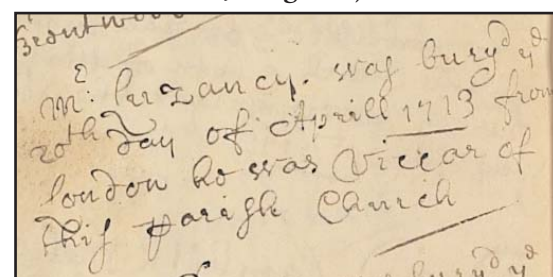 Brentwood
Mr: Luzancy. was buryd ye
20th Day of Aprill 1713 from
london he was Viccar of
this parish Church
buryd ye